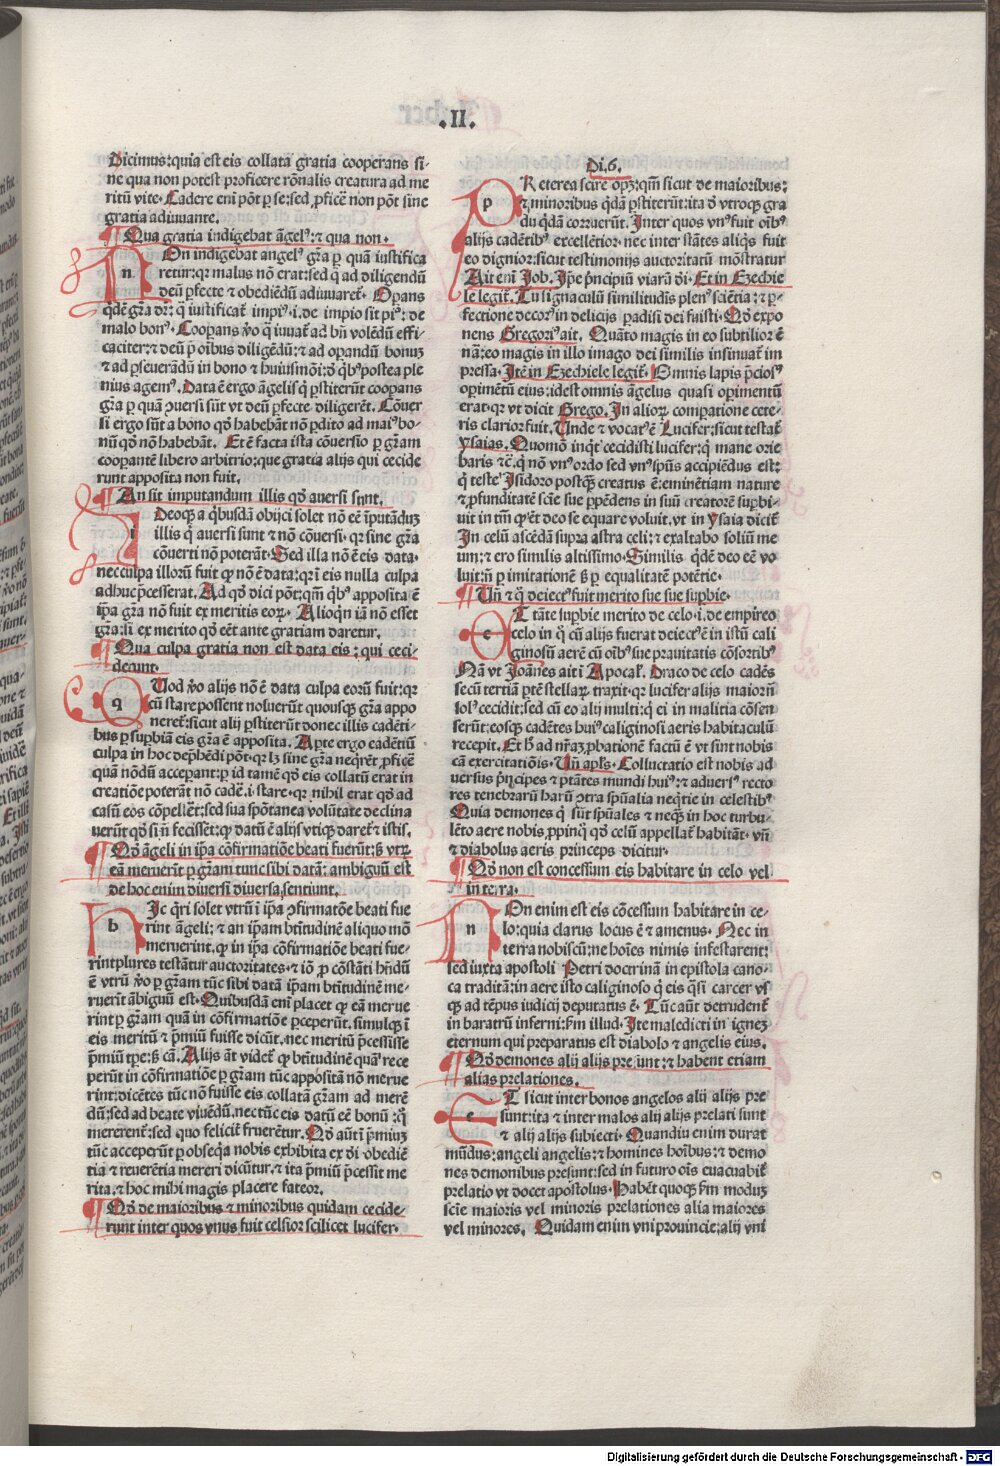 .II.
Dicimus: quia est eis collata gratia cooperans si-
ne qua non potest proficere rōnalis creatura ad me
ritū vite. Cadere eni pōt p se: sed pficē non pōt sine
gratia adiuuante.
¶ Qua gratia indigebat āgelꝰ: ⁊ qua non.
NOn indigebat angelꝰ grā p quā iustifica
retur: qꝛ malus nō erat: sed q ad diligendū
deū pfecte ⁊ obediēdū adiuuaret. Opans
qdē grā dr: q iustificat impiꝰ. i. de impio fit piꝰ: de
malo bonꝰ. Coopans ꝟo q iuuat ad bn volēdū effi-
caciter: ⁊ deū p oibus diligēdū: ⁊ ad opandū bonuꝫ
⁊ ad pseuerādū in bono ⁊ huiusmōi: ꝺ qbꝰ postea ple
nius agemꝰ. Data ē ergo āgelis q pstiterūt coopans
grā p quā ꝯuersi sūt vt deū pfecte diligerēt. Cōuer
si ergo sūt a bono qꝺ habebāt nō pdito ad maiꝰ bo-
nū qꝺ nō habebāt. Et ē facta ista cōuersio p gram
coopantē libero arbitrio: que gratia alijs qui cecide
runt apposita non fuit.
¶ An sit imputandum illis qꝺ auersi sunt.
IDeoqꝫ a qbusdā obijci solet nō eē iputāduꝫ
illis q auersi sunt ⁊ nō cōuersi. qꝛ sine grā
cōuerti nō poterāt. Sed illa nō ē eis data.
nec culpa illorū fuit qꝛ nō ē data: qꝛ i eis nulla culpa
adhuc pcesserat. Ad qꝺ dici pōt: qm qbꝰ apposita ē
ipa grā nō fuit ex meritis eoꝝ. Alioqn iā nō esset
grā: si ex merito qꝺ eēt ante gratiam daretur.
¶ Qua culpa gratia non est data eis: qui ceci-
derunt.
QUod ꝟo alijs nō ē data culpa eorū fuit: qꝛ
cū stare possent noluerūt quousqꝫ grā appo
neret: sicut alij pstiterūt donec illis cadēti-
bus p supbiā eis grā ē apposita. Apte ergo cadētiū
culpa in hoc dephēdi pōt. qꝛ lꝫ sine grā neqrēt pficē
quā nōdū accepant: p id tamē qꝺ eis collatū erat in
creatiōe poterāt nō cadē. i. stare. qꝛ nihil erat qꝺ ad
casū eos cōpellēt: sed sua spōtanea volūtate declina
uerūt qꝺ si n fecissēt: qꝺ datū ē alijs vtiqꝫ daret ⁊ istis.
¶ Qꝺ āgeli in ipa cōfirmatiōe beati fuerūt: sꝫ vtꝝ
eā meruerit p gram tunc sibi datā: ambiguū est
de hoc enim diuersi diuersa sentiunt.
HIc qri solet vtrū i ipa ꝯfirmatōe beati fue
rint āgeli: ⁊ an ipam btitudinē aliquo mō
meruerint. qꝛ in ipa cōfirmatiōe beati fue-
rint plures testātur auctoritates. ⁊ iō p cōstāti hndū
ē vtrū ꝟo p gram tūc sibi datā ipam btitudinē me-
ruerit ābiguū est. Quibusdā eni placet qꝛ eā merue
rint p gram quā in cōfirmatiōe pceperūt. simulqꝫ i
eis meritū ⁊ pmiū fuisse dicūt. nec meritū pcessisse
pmiū tpe: sꝫ cā. Alijs āt videt qꝛ btitudinē quā rece
perūt in cōfirmatiōe p gram tūc appositā nō merue
rint: dicētes tūc nō fuisse eis collatā gram ad merē
dū: sed ad beate viuēdū. nec tūc eis datū eē bonū: q
mererent: sed quo feliciter fruerētur. Qꝺ aūt i pmiuꝫ
tūc acceperūt p obseqa nobis exhibita ex ꝺi obediē
tia ⁊ reuerētia mereri dicūtur. ⁊ ita pmiū pcessit me
rita. ⁊ hoc mihi magis placere fateor.
¶ Qꝺ de maioribus ⁊ minoribus quidam cecide-
runt inter quos vnus fuit celsior scilicet lucifer.
Di. 6.
PReterea scire opꝫ: qm sicut de maioribus:
⁊ minoribus qdā pstiterūt: ita ꝺ vtroqꝫ gra
du qdā corruerūt. Inter quos vnꝰ fuit oibꝰ
alijs cadētibꝰ excellētior. nec inter stātes aliqs fuit
eo dignior: sicut testimonijs auctoritatū mōstratur
Ait eni Iob. Ipe pncipiū viarū ꝺi. Et in Ezechie
le legit. Tu signaculū similitudis plenꝰ sciētia: ⁊ p-
fectione decorꝰ in delicijs padisi dei fuisti. Qꝺ expo
nens Gregoriꝰ ait. Quāto magis in eo subtilior ē
nā: eo magis in illo imago dei similis insinuat im
pressa. Itē in Ezechiele legit. Omnis lapis pciosꝰ
opimētū eius: idest omnis āgelus quasi opimentū
erat. qꝛ vt dicit Grego. In alioꝝ compatione cete-
ris clarior fuit. Unde ⁊ vocatꝰ ē Lucifer: sicut testat
Ysaias. Quomō inqt cecidisti lucifer: q mane orie
baris ⁊c̄. q nō vnꝰ ordo sed vnꝰ spūs accipiēdus est:
q teste Isidoro postqꝫ creatus ē: eminētiam nature
⁊ pfunditatē sciē sue ppēdens in suū creatorē supbi-
uit in tm qꝛ ēt deo se equare voluit. vt in Ysaia dicit
In celū ascēdā supra astra celi: ⁊ exaltabo soliū me
um: ⁊ ero similis altissimo. Similis qdē deo eē vo
luit: n p imitationē sꝫ p equalitatē potētie.
¶ Un ⁊ q deiectꝰ fuit merito sue sue supbie.
ET tāte supbie merito de celo. i. de empireo
celo in q cū alijs fuerat deiectꝰ ē in istū cali
ginosū aerē cū oibꝰ sue prauitatis cōsortibꝰ
Nā vt Ioānes ait i Apocal. Draco de celo cadēs
secū tertiā ptē stellaꝝ traxit. qꝛ lucifer alijs maiorū
lolꝰ cecidit: sed cū eo alij multi: q ei in malitia cōsen
serūt: eosqꝫ cadētes huiꝰ caliginosi aeris habitaculū
recepit. Et hꝰ ad nraꝫ pbationē factū ē vt sint nobis
cā exercitatiōis. Un apls. Colluctatio est nobis ad
uersus pncipes ⁊ ptātes mundi huiꝰ: ⁊ aduersꝰ recto
res tenebrarū harū ꝯtra spūalia neqtie in celestibꝰ
Quia demones q sūt spūales ⁊ neqꝫ in hoc turbu
lēto aere nobis ppinq qꝺ celū appellat habitāt. vn
⁊ diabolus aeris princeps dicitur.
¶ Qꝺ non est concessum eis habitare in celo vel
in terra.
NOn enim est eis cōcessum habitare in ce-
lo: quia clarus locus ē ⁊ amenus. Nec in
terra nobiscū: ne hoies nimis infestarent:
sed iuxta apostoli Petri doctrinā in epistola cano-
ca traditā: in aere isto caliginoso q eis qsi carcer vs
qꝫ ad tēpus iudicij deputatus ē. Tūc aūt detrudent
in baratrū inferni: fm illud. Ite maledicti in igneꝫ
eternum qui preparatus est diabolo ⁊ angelis eius.
¶ Qꝺ demones alij alijs presunt: ⁊ habent etiam
alias prelationes.
ET sicut inter bonos angelos alij alijs pre
sunt: ita ⁊ inter malos alij alijs prelati sunt
⁊ alij alijs subiecti. Quandiu enim durat
mūdus: angeli angelis: ⁊ homines hoibus: ⁊ demo
nes demonibus presunt: sed in futuro ois euacuabit
prelatio vt docet apostolus. Habēt quoqꝫ fm moduꝫ
scie maioris vel minoris prelationes alia maiores
vel minores. Quidam enim vni prouincie: alij vni
Digitalisierung gefördert durch die Deutsche Forschungsgemeinschaft - DFG